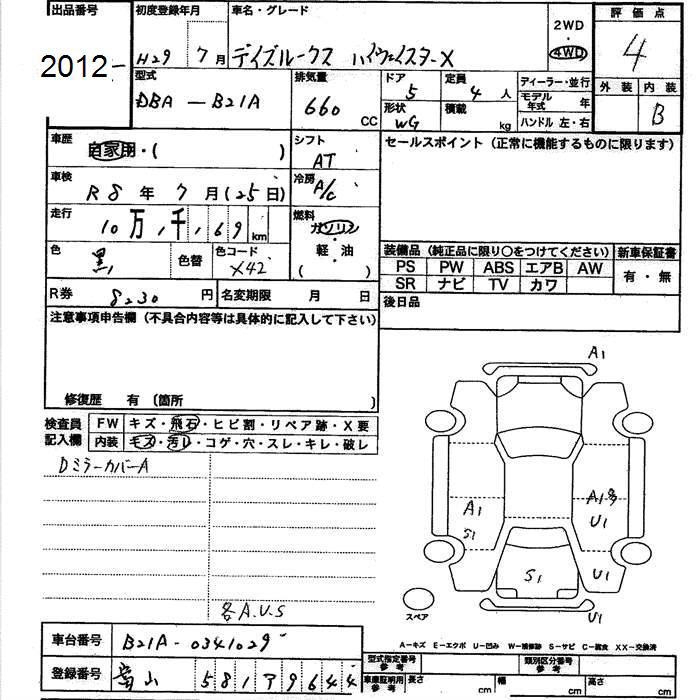 出品番号 初度登録年月 車名・グレード 2WD ・ 4WD 評価点
2012- H29 7月 デイズルークス ハイウェイスターX 4
型式 排気量 ドア 定員 ディーラー・並行 外装 内装
DBA - B21A 660 CC 5 4人 モデル年式 年 B
形状 WG 積載 kg ハンドル 左・右
車歴 自家用・( ) シフト AT セールスポイント (正常に機能するものに限ります)
車検 R8年 7月(25日) 冷房 A/C
走行 10万,1千,169 km 燃料 ガソリン・軽・油 ( )
色 黒 色替 色コード X42
装備品 (純正品に限り〇をつけてください) 新車保証書
PS PW ABS エアB AW 有・無
SR ナビ TV カワ
R券 8230 円 名変期限 月 日 後日品
注意事項申告欄 (不具合内容等は具体的に記入して下さい)
修復歴 有 (箇所 )
検査員記入欄 FW キズ・飛石・ヒビ割・リペア跡・X要
内装 キズ・汚レ・コゲ・穴・スレ・キレ・破レ
DミラーカバーA
各A.U.S
A1
A1
S1
U1
S1
U1
U1
スペア
A-キズ E-エクボ U-凹み W-補修跡 S-サビ C-腐食 XX-交換済
車台番号 B21A-0341029
登録番号 富山 581 ア 9644
型式指定番号 参考 類別区分番号 参考
車庫証明用 参考 長さ cm 幅 cm 高さ cm